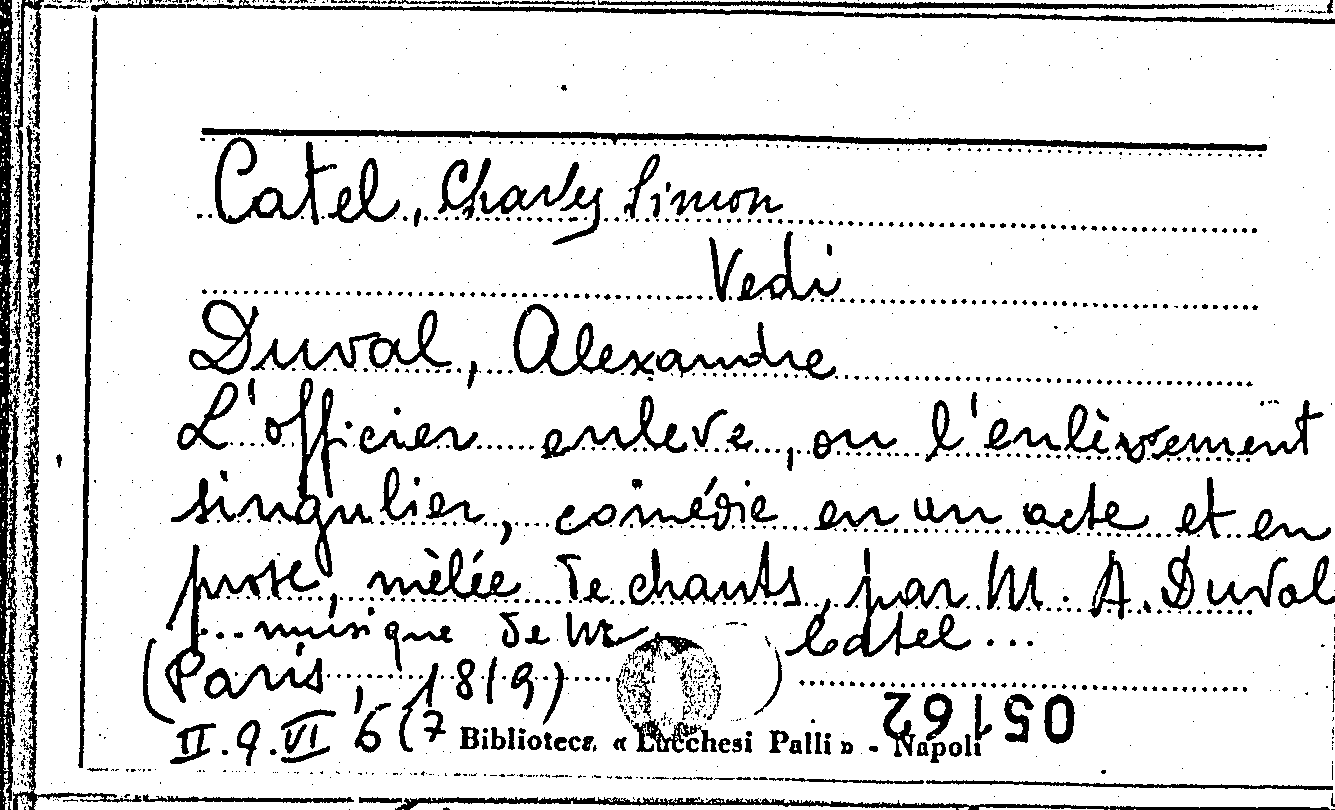 Catel, Charles Simon
Vedi
Duval, Alexandre
L'officier enleve, ou l'enlèvement
singulier, comédie en un acte et en
prose, mèlée de chants, par M. A. Duval
... musique de Mr. Catel...
(Paris, 1819)
II.9.VI 6(7
Biblioteca « Lucchesi Palli » - Napoli
05162